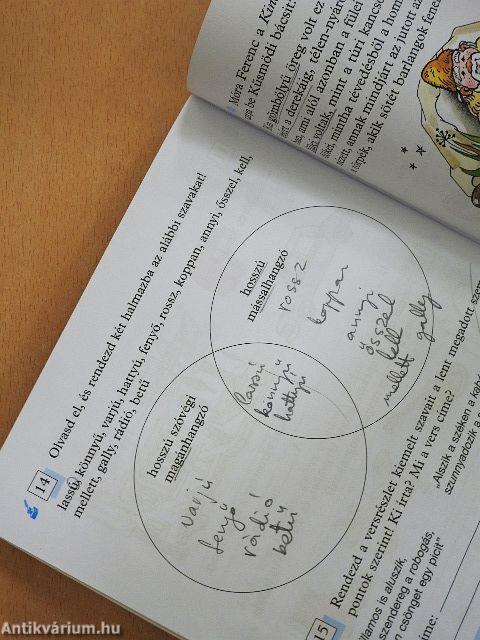 Móra Ferenc a Kin
be Kismödi bácsit
gömbölyű öreg volt ez
a derekáig, télen-nyáro
ami alól azonban a fülei
voltak, mint a túri kancsó
mintha tévedésből a hom
annak mindjárt az jutott az
törpék, akik sötét barlangok fene
14 Olvasd el, és rendezd két halmazba az alábbi szavakat!
lassú, könnyű, varjú, hattyú, fenyő, rossz, koppan, annyi, ősszel, kell,
mellett, gally, rádió, betű
hosszú
mássalhangzó
rossz
koppan
annyi
ősszel
kell
mellett gally
lassú
könnyű
hattyú
hosszú szóvégi
magánhangzó
varjú
fenyő
rádió
betű
15 Rendezd a versrészlet kiemelt szavait a lent megadott szem
pontok szerint! Ki írta? Mi a vers címe?
„Alszik a széken a kabá
szunnyadozik a s
llamos is aluszik,
szendereg a robogás,
csönget egy picit”
Antikvárium.hu